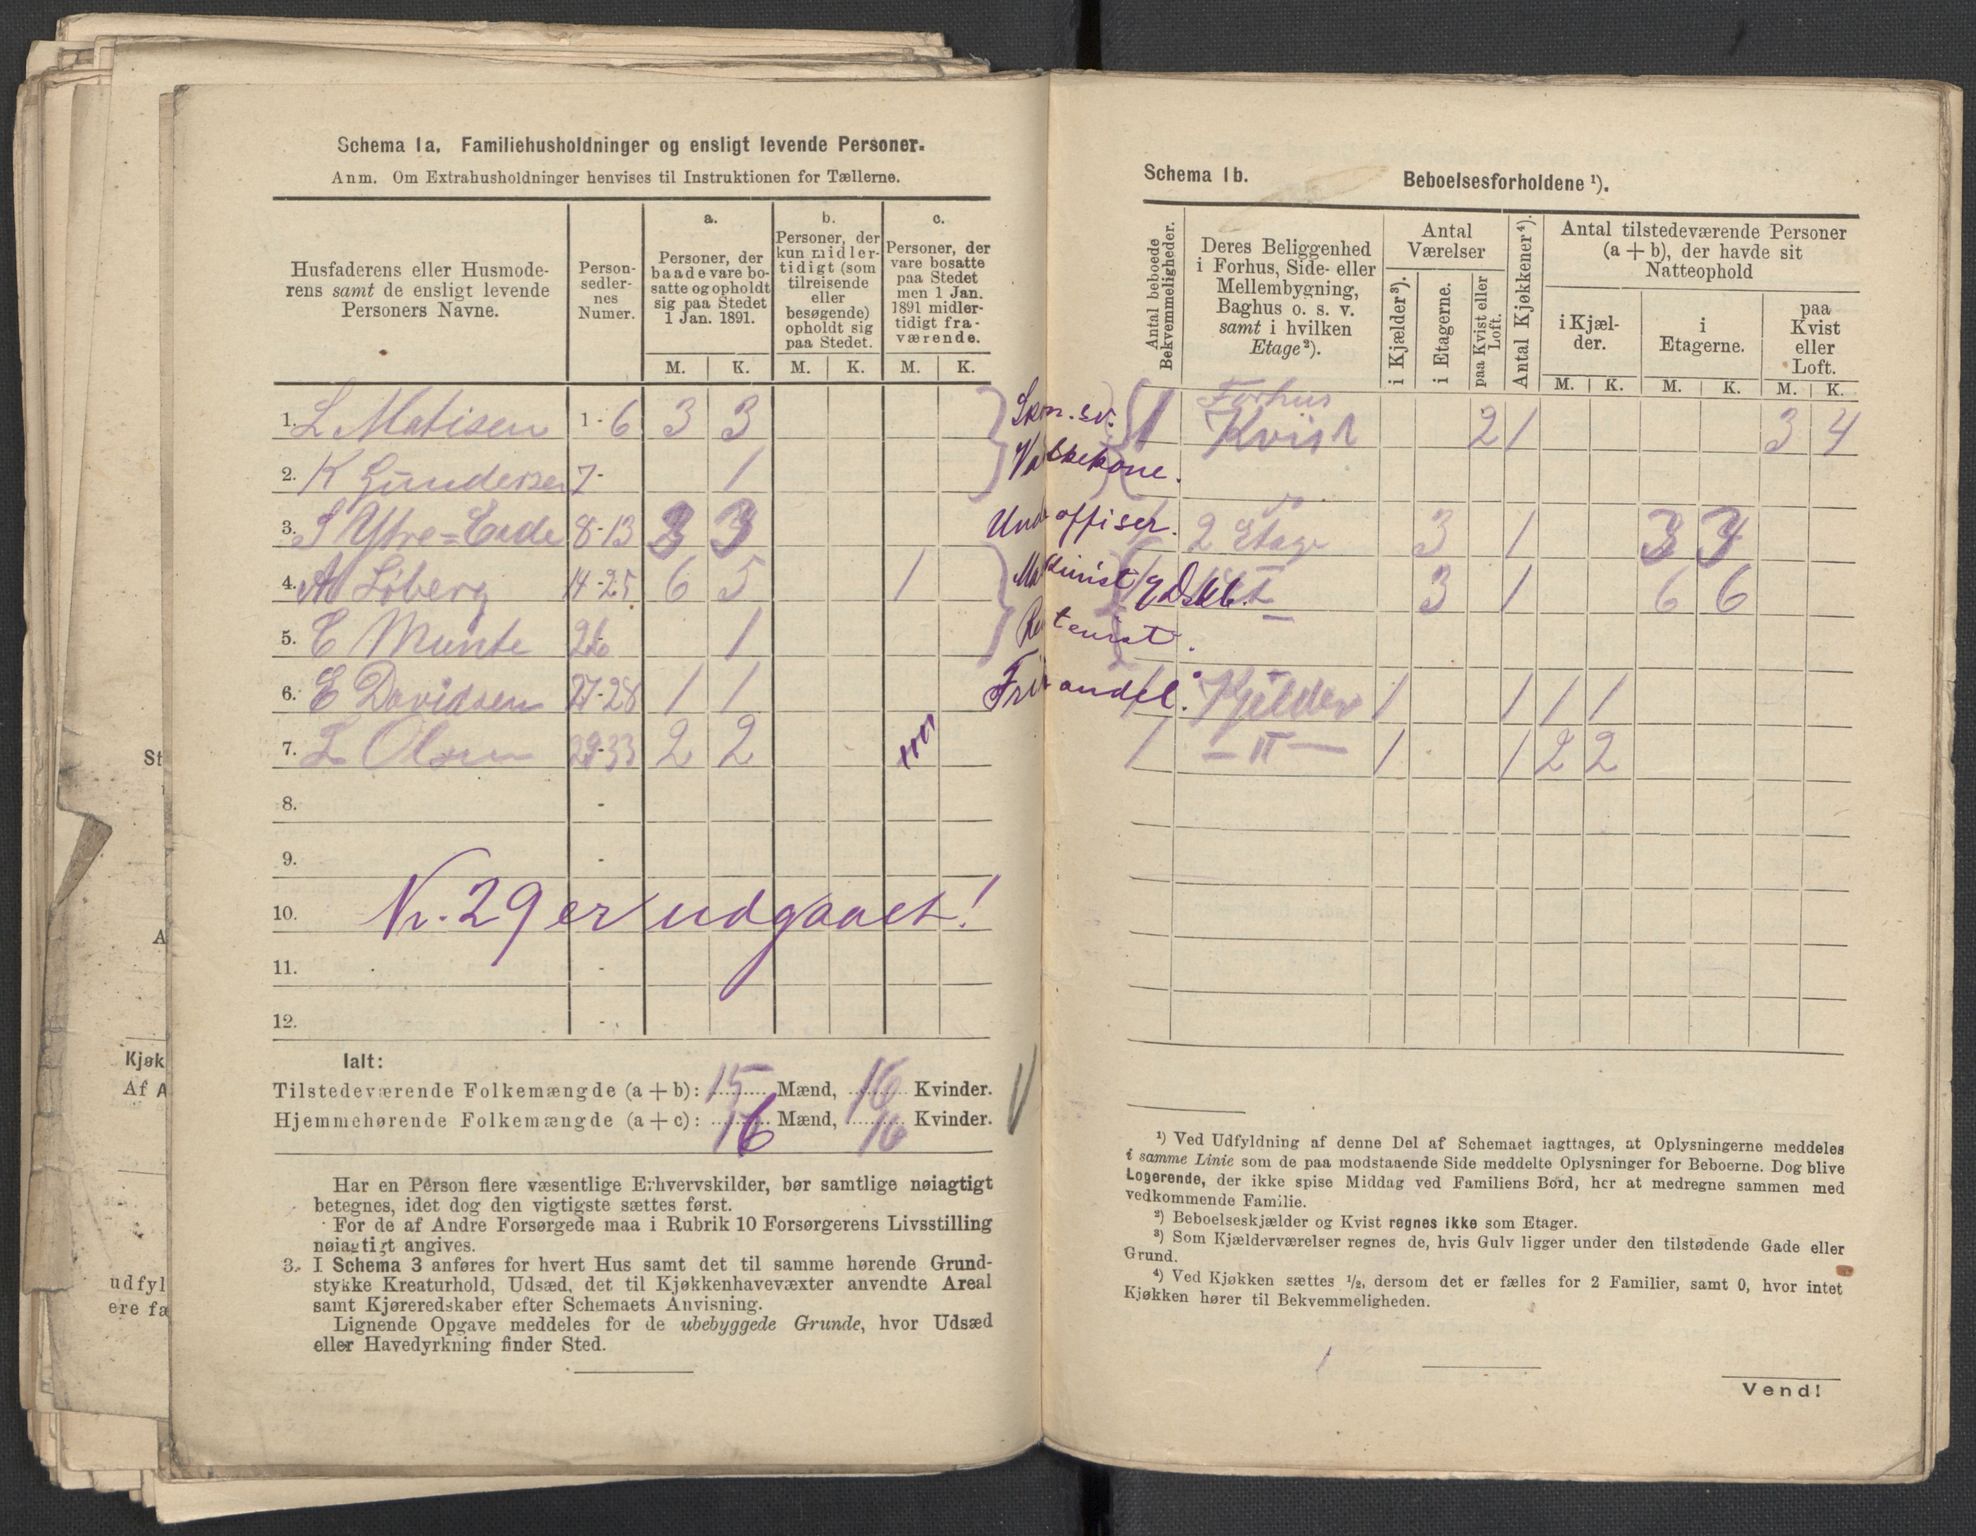 Schema 1a. Familiehusholdninger og ensligt levende Personer.
Anm. Om Extrahusholdninger henvises til Instruktionen for Tællerne.
Husfaderens eller Husmoderens samt de ensligt levende Personers Navne.
Personsedlernes Numer.
a.
Personer, der baade vare bosatte og opholdt sig paa Stedet 1 Jan. 1891.
b.
Personer, der kun midlertidigt (som tilreisende eller besøgende) opholdt sig paa Stedet.
c.
Personer, der vare bosatte paa Stedet men 1 Jan. 1891 midlertidigt fraværende.
M. K. M. K. M. K.
1. L Matisen 1-6 3 3
2. K Gundersen 7- 1
3. S Ytre=Eide 8-13 3 3
4. A Løberg 14-25 6 5 1
5. E Munte 26 1
6. E Davidsen 27-28 1 1
7. L Olsen 29-33 2 2
8. -
9. -
10. Nr. 29 er udgaaet!
11. -
12. -
Ialt:
Tilstedeværende Folkemængde (a + b): 15 Mænd, 16 Kvinder.
Hjemmehørende Folkemængde (a + c): 16 Mænd, 16 Kvinder.
Har en Person flere væsentlige Erhvervskilder, bør samtlige nøiagtigt
betegnes, idet dog den vigtigste sættes først.
For de af Andre Forsørgede maa i Rubrik 10 Forsørgerens Livsstilling
nøiagtigt angives.
3. I Schema 3 anføres for hvert Hus samt det til samme hørende Grund-
stykke Kreaturhold, Udsæd, det til Kjøkkenhavevæxter anvendte Areal
samt Kjøreredskaber efter Schemaets Anvisning.
Lignende Opgave meddeles for de ubebyggede Grunde, hvor Udsæd
eller Havedyrkning finder Sted.
St
A
Kjøk
Af A
udfyl
ere fæ
Schema 1b. Beboelsesforholdene ¹).
Antal beboede Bekvemmeligheder.
Deres Beliggenhed i Forhus, Side- eller Mellembygning, Baghus o. s. v. samt i hvilken Etage²).
Antal Værelser
i Kjælder³).
i Etagerne.
paa Kvist eller Loft.
Antal Kjøkkener⁴).
Antal tilstedeværende Personer (a + b), der havde sit Natteophold
i Kjælder.
i Etagerne.
paa Kvist eller Loft.
M. K. M. K. M. K.
1 Forhus Kvist 2 1 3 4
Vaskekone.
Underoffiser. 2 Etage 3 1 3 3
Maskinist 3 1 6 6
Rentenist.
1 Kjelder 1 1 1 1
1 — " — 1 1 2 2
¹) Ved Udfyldning af denne Del af Schemaet iagttages, at Oplysningerne meddeles
i samme Linie som de paa modstaaende Side meddelte Oplysninger for Beboerne. Dog blive
Logerende, der ikke spise Middag ved Familiens Bord, her at medregne sammen med
vedkommende Familie.
²) Beboelseskjælder og Kvist regnes ikke som Etager.
³) Som Kjælderværelser regnes de, hvis Gulv ligger under den tilstødende Gade eller
Grund.
⁴) Ved Kjøkken sættes ½, dersom det er fælles for 2 Familier, samt 0, hvor intet
Kjøkken hører til Bekvemmeligheden.
Vend!